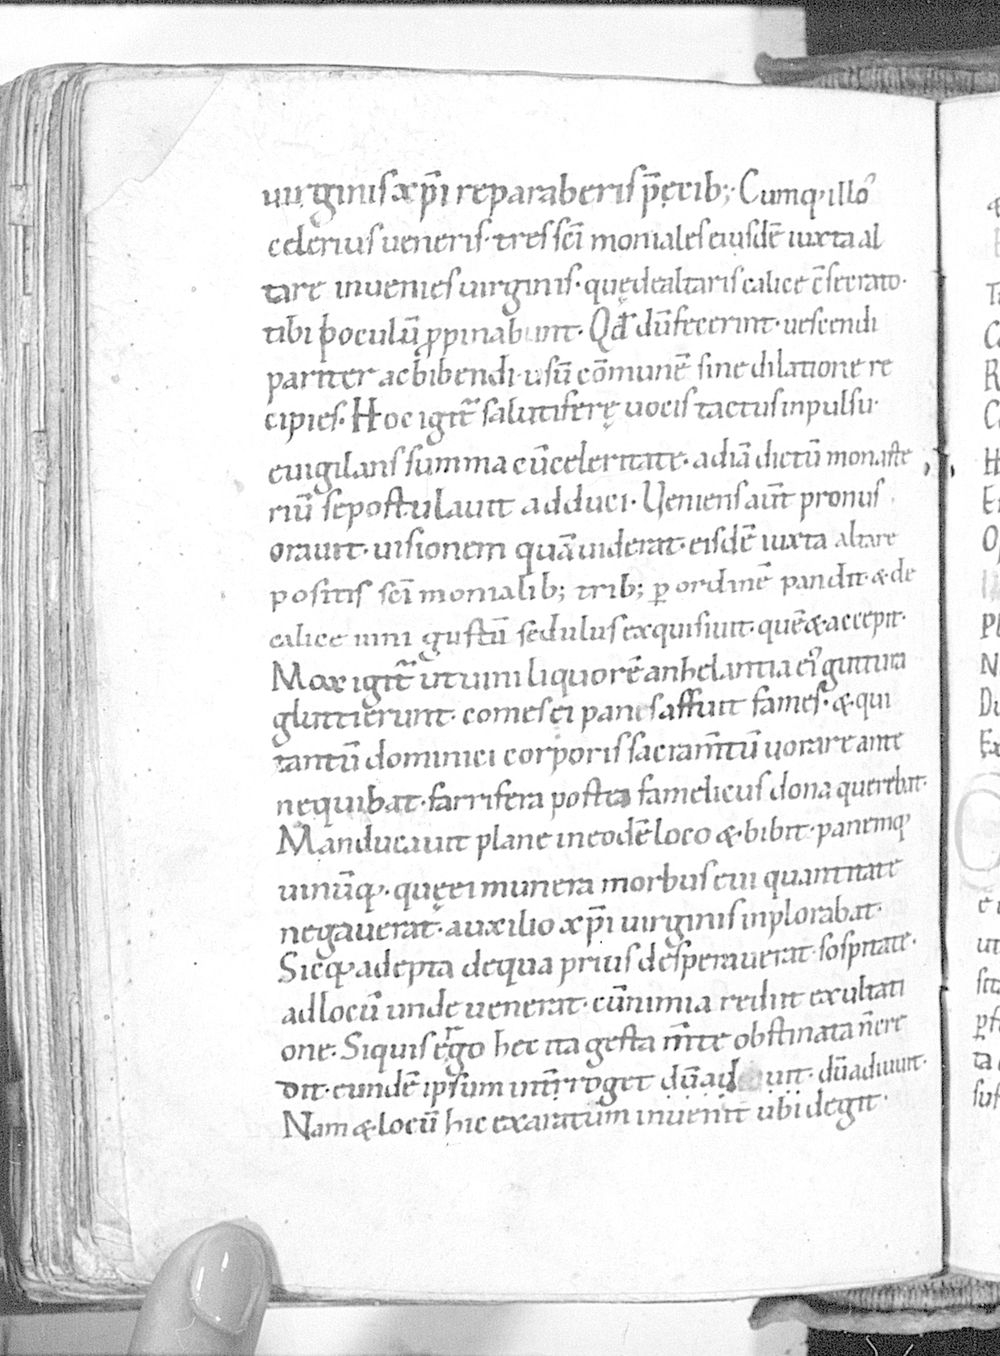 uirginis xp̄i reparaberis p̄cib; Cumq; illo
celerius ueneris· tres sc̄i moniales eiusdē iuxta al
tare inuenies uirginis· quę de altaris calice c̄secrato·
tibi poculū ꝓpinabunt· Qđ dū fecerint· uescendi
pariter ac bibendi· usū cōmunē sine dilatione re
cipies· Hoc igit̄ salutiferę uocis tactus inpulsu·
euigilans summa cū celeritate· ad iā dictū monaste
riū se postulauit adduci· Veniens aūt pronus
orauit· uisionem quā uiderat· eisdē iuxta altare
positis sc̄i monialib; trib; ꝑ ordinē pandit· & de
calice uini gustū sedulus exquisiuit· quē & accepit·
Mox igit̄ ut uini liquorē anhelantia ei' guttura
gluttierunt· comes ei panis affuit fames· & qui
tantū dominici corporis sacram̄tū uorare ante
nequibat· farrifera postea famelicus dona querebat·
Manducauit plane in eodē loco & bibit· panemq;
uinūq;· quę ei munera morbus cui quantitate
negauerat· auxilio xp̄i uirginis inplorabat·
Sicq; adepta de qua prius desperauerat sospitate·
ad locū unde uenerat· cū nimia rediit exultati
one· Siquis ergo hec ita gesta m̄te obstinata n̄ cre
dit· eundē ipsum int̄roget dū aduiuit· dū adiuuit·
Nam & locū hic exaratum inuenit ubi degit·